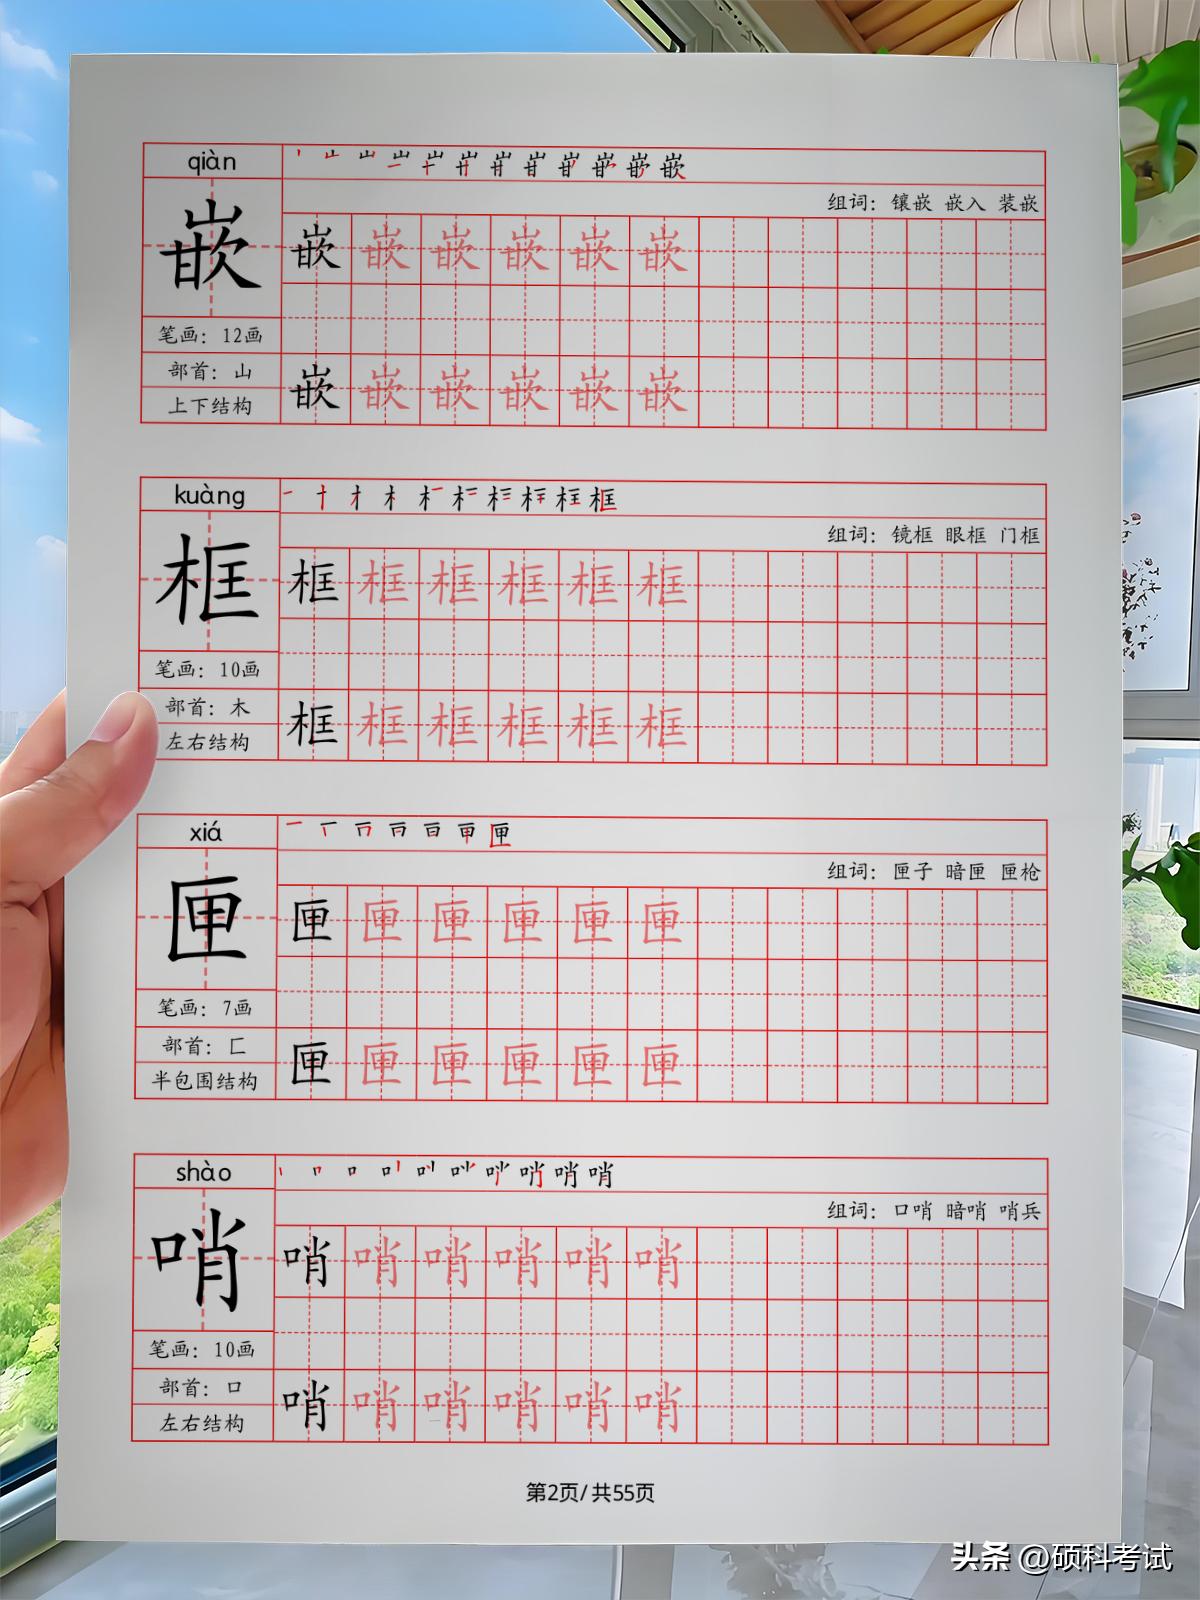 qiàn
组词：镶嵌 嵌入 装嵌
嵌
嵌 嵌 嵌 嵌 嵌 嵌
笔画：12画
部首：山
上下结构
嵌 嵌 嵌 嵌 嵌 嵌
kuàng
组词：镜框 眼框 门框
框
框 框 框 框 框 框
笔画：10画
部首：木
左右结构
框 框 框 框 框 框
xiá
组词：匣子 暗匣 匣枪
匣
匣 匣 匣 匣 匣 匣
笔画：7画
部首：匚
半包围结构
匣 匣 匣 匣 匣 匣
shào
组词：口哨 暗哨 哨兵
哨
哨 哨 哨 哨 哨 哨
笔画：10画
部首：口
左右结构
哨 哨 哨 哨 哨 哨
第2页/共55页
头条 @硕科考试